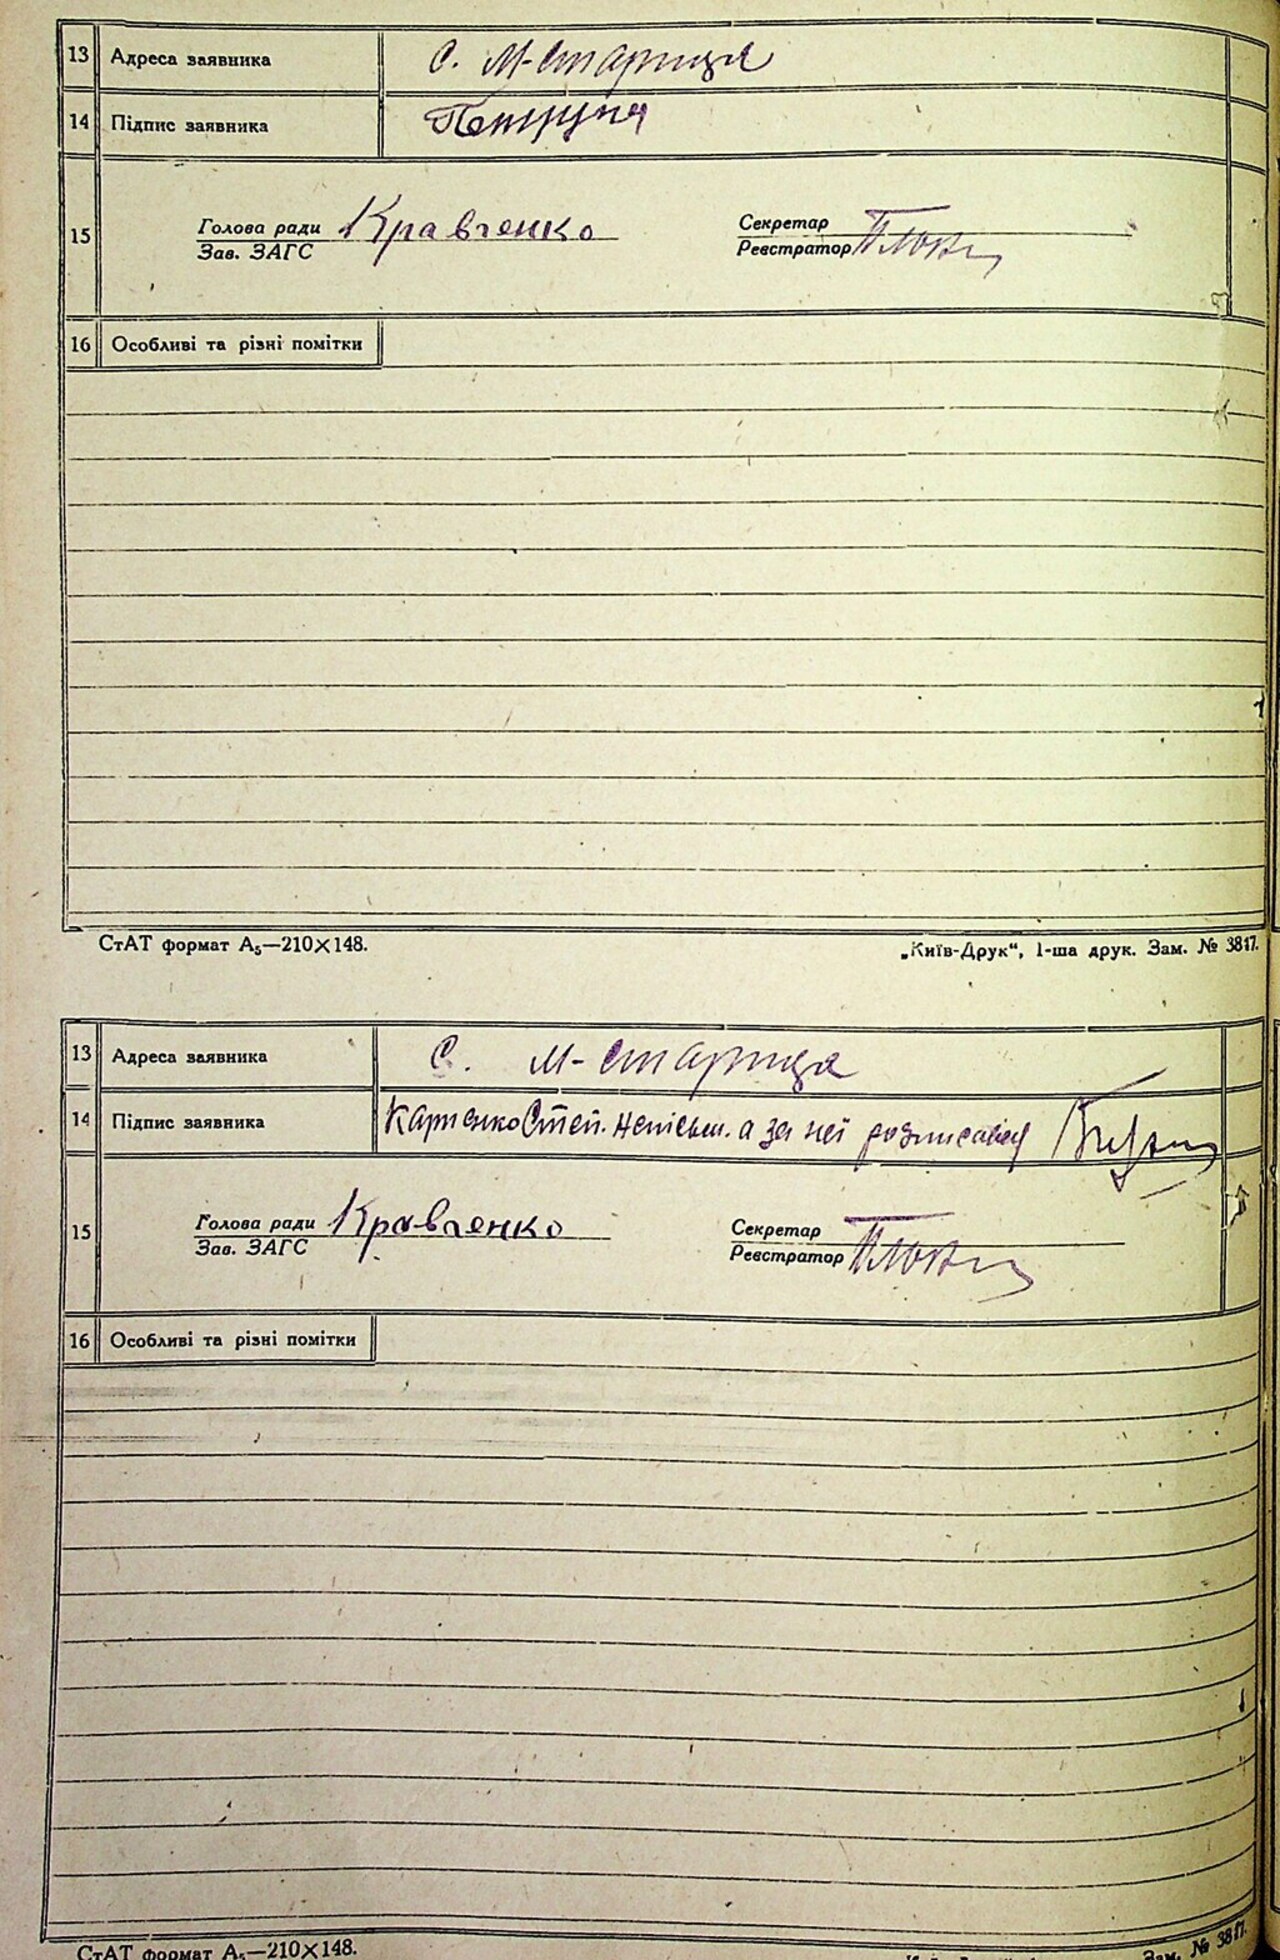 13 Адреса заявника с. М-Стариця
14 Підпис заявника
15 Голова ради Кравченко Секретар
Зав. ЗАГС Реєстратор
16 Особливі та різні помітки
СтАТ формат А₅—210×148. „Київ-Друк“, 1-ша друк. Зам. № 3817.
13 Адреса заявника с. М-Стариця
14 Підпис заявника Карпенко Степ. неписьм. а за неї розписався
15 Голова ради Кравченко Секретар
Зав. ЗАГС Реєстратор
16 Особливі та різні помітки
СтАТ формат А₅—210×148. Зам. № 3817.